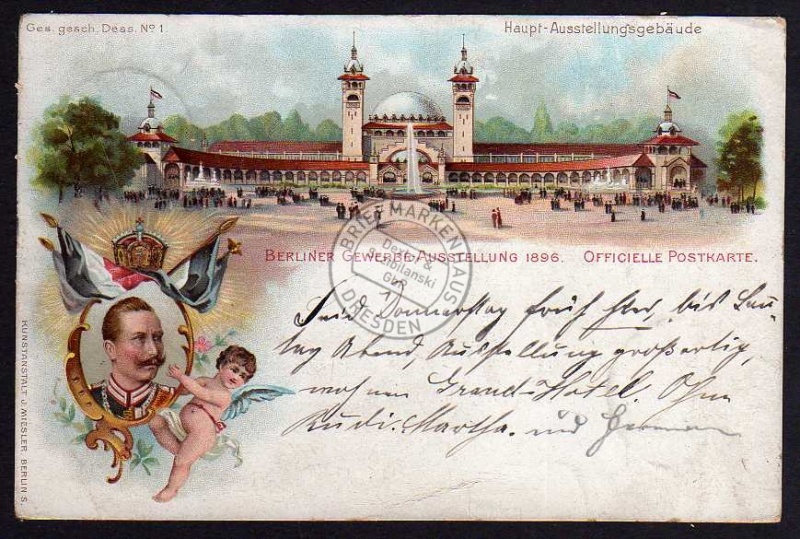 Ges. gesch. Dess. No 1
Haupt-Ausstellungsgebäude
BERLINER GEWERBE-AUSSTELLUNG 1896. OFFICIELLE POSTKARTE.
BRIEFMARKENHAUS
Dexler &
GbR
DRESDEN
Seid Donnerstag früh hier, bis Sonn-
tag Abend, Ausstellung großartig,
wohnen Grand-Hotel.
Rudi. Martha. und Herman
KUNSTANSTALT J. MIESLER, BERLIN S.